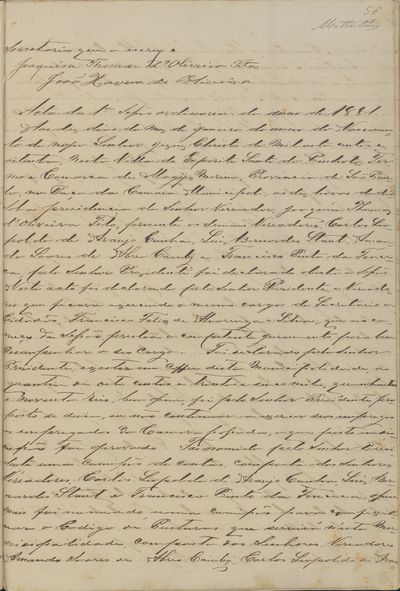 58
Secretario que o escrevi
Joaquim Thomaz d'Oliveira Tito
João Xavier de Oliveira
Acta da 1ª Sessão ordinaria do anno de 1881.
Aos dez dias do mez de Janeiro do anno do Nascimen
to de nosso Senhor Jesus Christo de mil oito centos e
oitenta, nesta Villa do Espirito Santo do Pinhal, Ter
mo e Comarca de Mogy Mirim, Provincia de São Pau
lo, no Paço da Camara Municipal, as dez horas do dia
sob a presidencia do Senhor Vereador, Joaquim Thomaz
d'Oliveira Tito, presente os Senhores Vereadores, Carlos Leo
poldo de Araujo Cunha, Luis Bernardo Staut, Aman
do Soares de Abreu Caiuby e Francisco Pinto da Fonce
ca, pelo Senhor Presidente foi declarado aberta a Sessão.
Neste acto foi declarado pelo Senhor Presidente,
que ficava exercendo o mesmo cargo de Secretario o
cidadão, Francisco Felix de e Silva, que no co
meço da Sessão prestou o competente juramento, para bem
desempenhar o seo cargo. Foi declarado pelo Senhor
Presidente, existir no Coffre desta Municipalidade, a
quantia de oito centos e trinta e mil, quinhentos
e noventa reis. foi pelo Senhor Presidente, pro
posto se devia, ou não continuar a exercer seus empregos
os empregados da Camara, o que posta
foi approvada. Foi nomeado pelo Senhor Presi
dente uma commissão de contas, composta dos Senhores
Vereadores, Carlos Leopoldo de Araujo Cunha, Luis Ber
nardo Staut e Francisco Pinto da Fonceca,
mais foi nomeada uma commissão para
o Codigo de Posturas, que servirá nesta Mu
nicipalidade, composta dos Senhores Vereadores
Amando Soares de Abreu Caiuby, Carlos Leopoldo de Arau